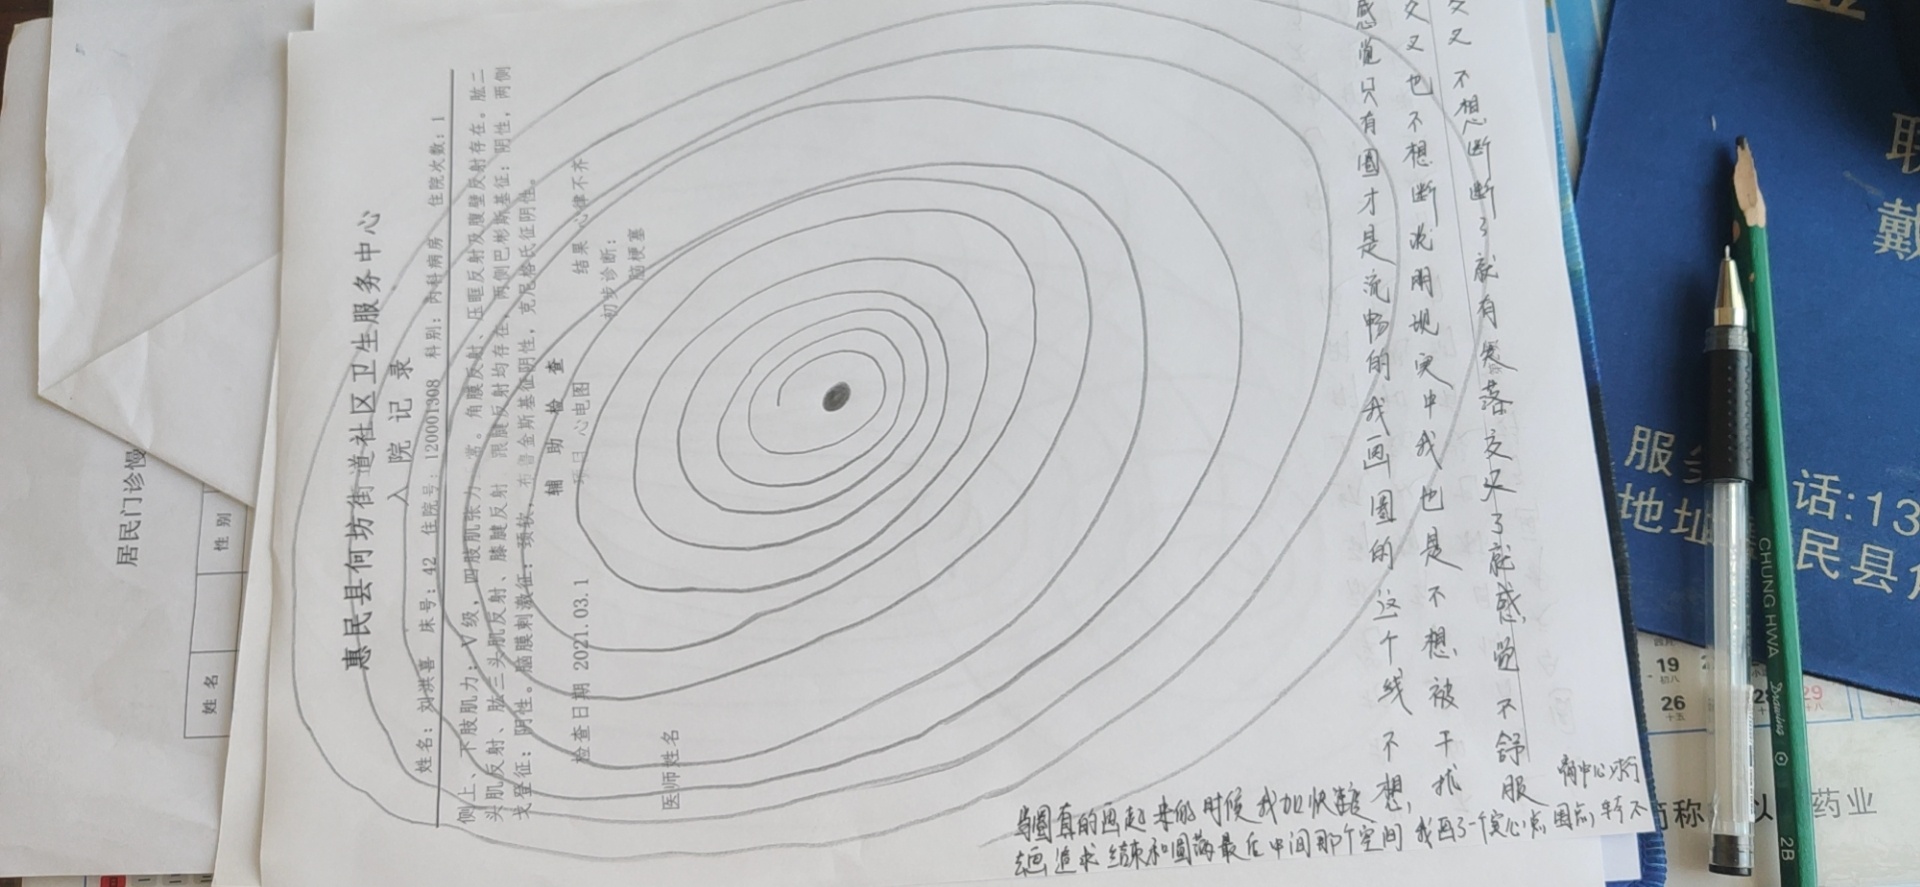 惠民县何坊街道社区卫生服务中心
入院记录
姓名：刘洪喜 床号：42 住院号：120001308 科别：内科病房 住院次数：1
侧上、下肢肌力：V级，四肢肌张力 常。角膜反射、压眶反射及腹壁反射存在。肱二
头肌反射、肱三头肌反射、膝腱反射 跟腱反射均存在，两侧巴彬斯基征：阴性，两侧
戈登征：阴性。脑膜刺激征：颈软，布鲁金斯基征阴性，克尼格氏征阴性。
辅助检查
检查日期 2021.03.1 项目 心电图 结果 心律不齐
初步诊断：
脑梗塞
医师姓名
交叉 不想断 断了就有失落 交叉了就感觉不舒服
交叉也不想断 说明现实中我也是不想被干扰
感觉只有圆才是流畅的 我画圆的这个线不想
当圆真的画起来的时候 我加快速度
去画 追求结束和圆满 最后中间那个空间 我画了一个实心点
居民门诊慢
姓名
性别
联
戴
服务
话:13
地址
民县
CHUNG HWA
Drawing
2B
19
初八
26
十五
28
29
十八
简称
以
药业